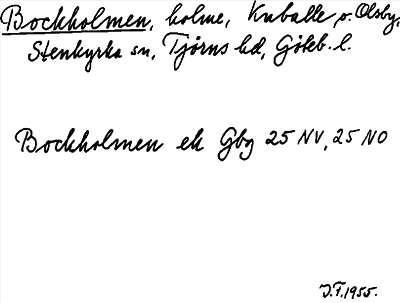 Bockholmen, holme, Kuballe, o. Olsby,
Stenkyrka sn, Tjörns hd, Göteb. l.
Bockholmen ek Gbg 25 NV, 25 NO
J.F. 1955.